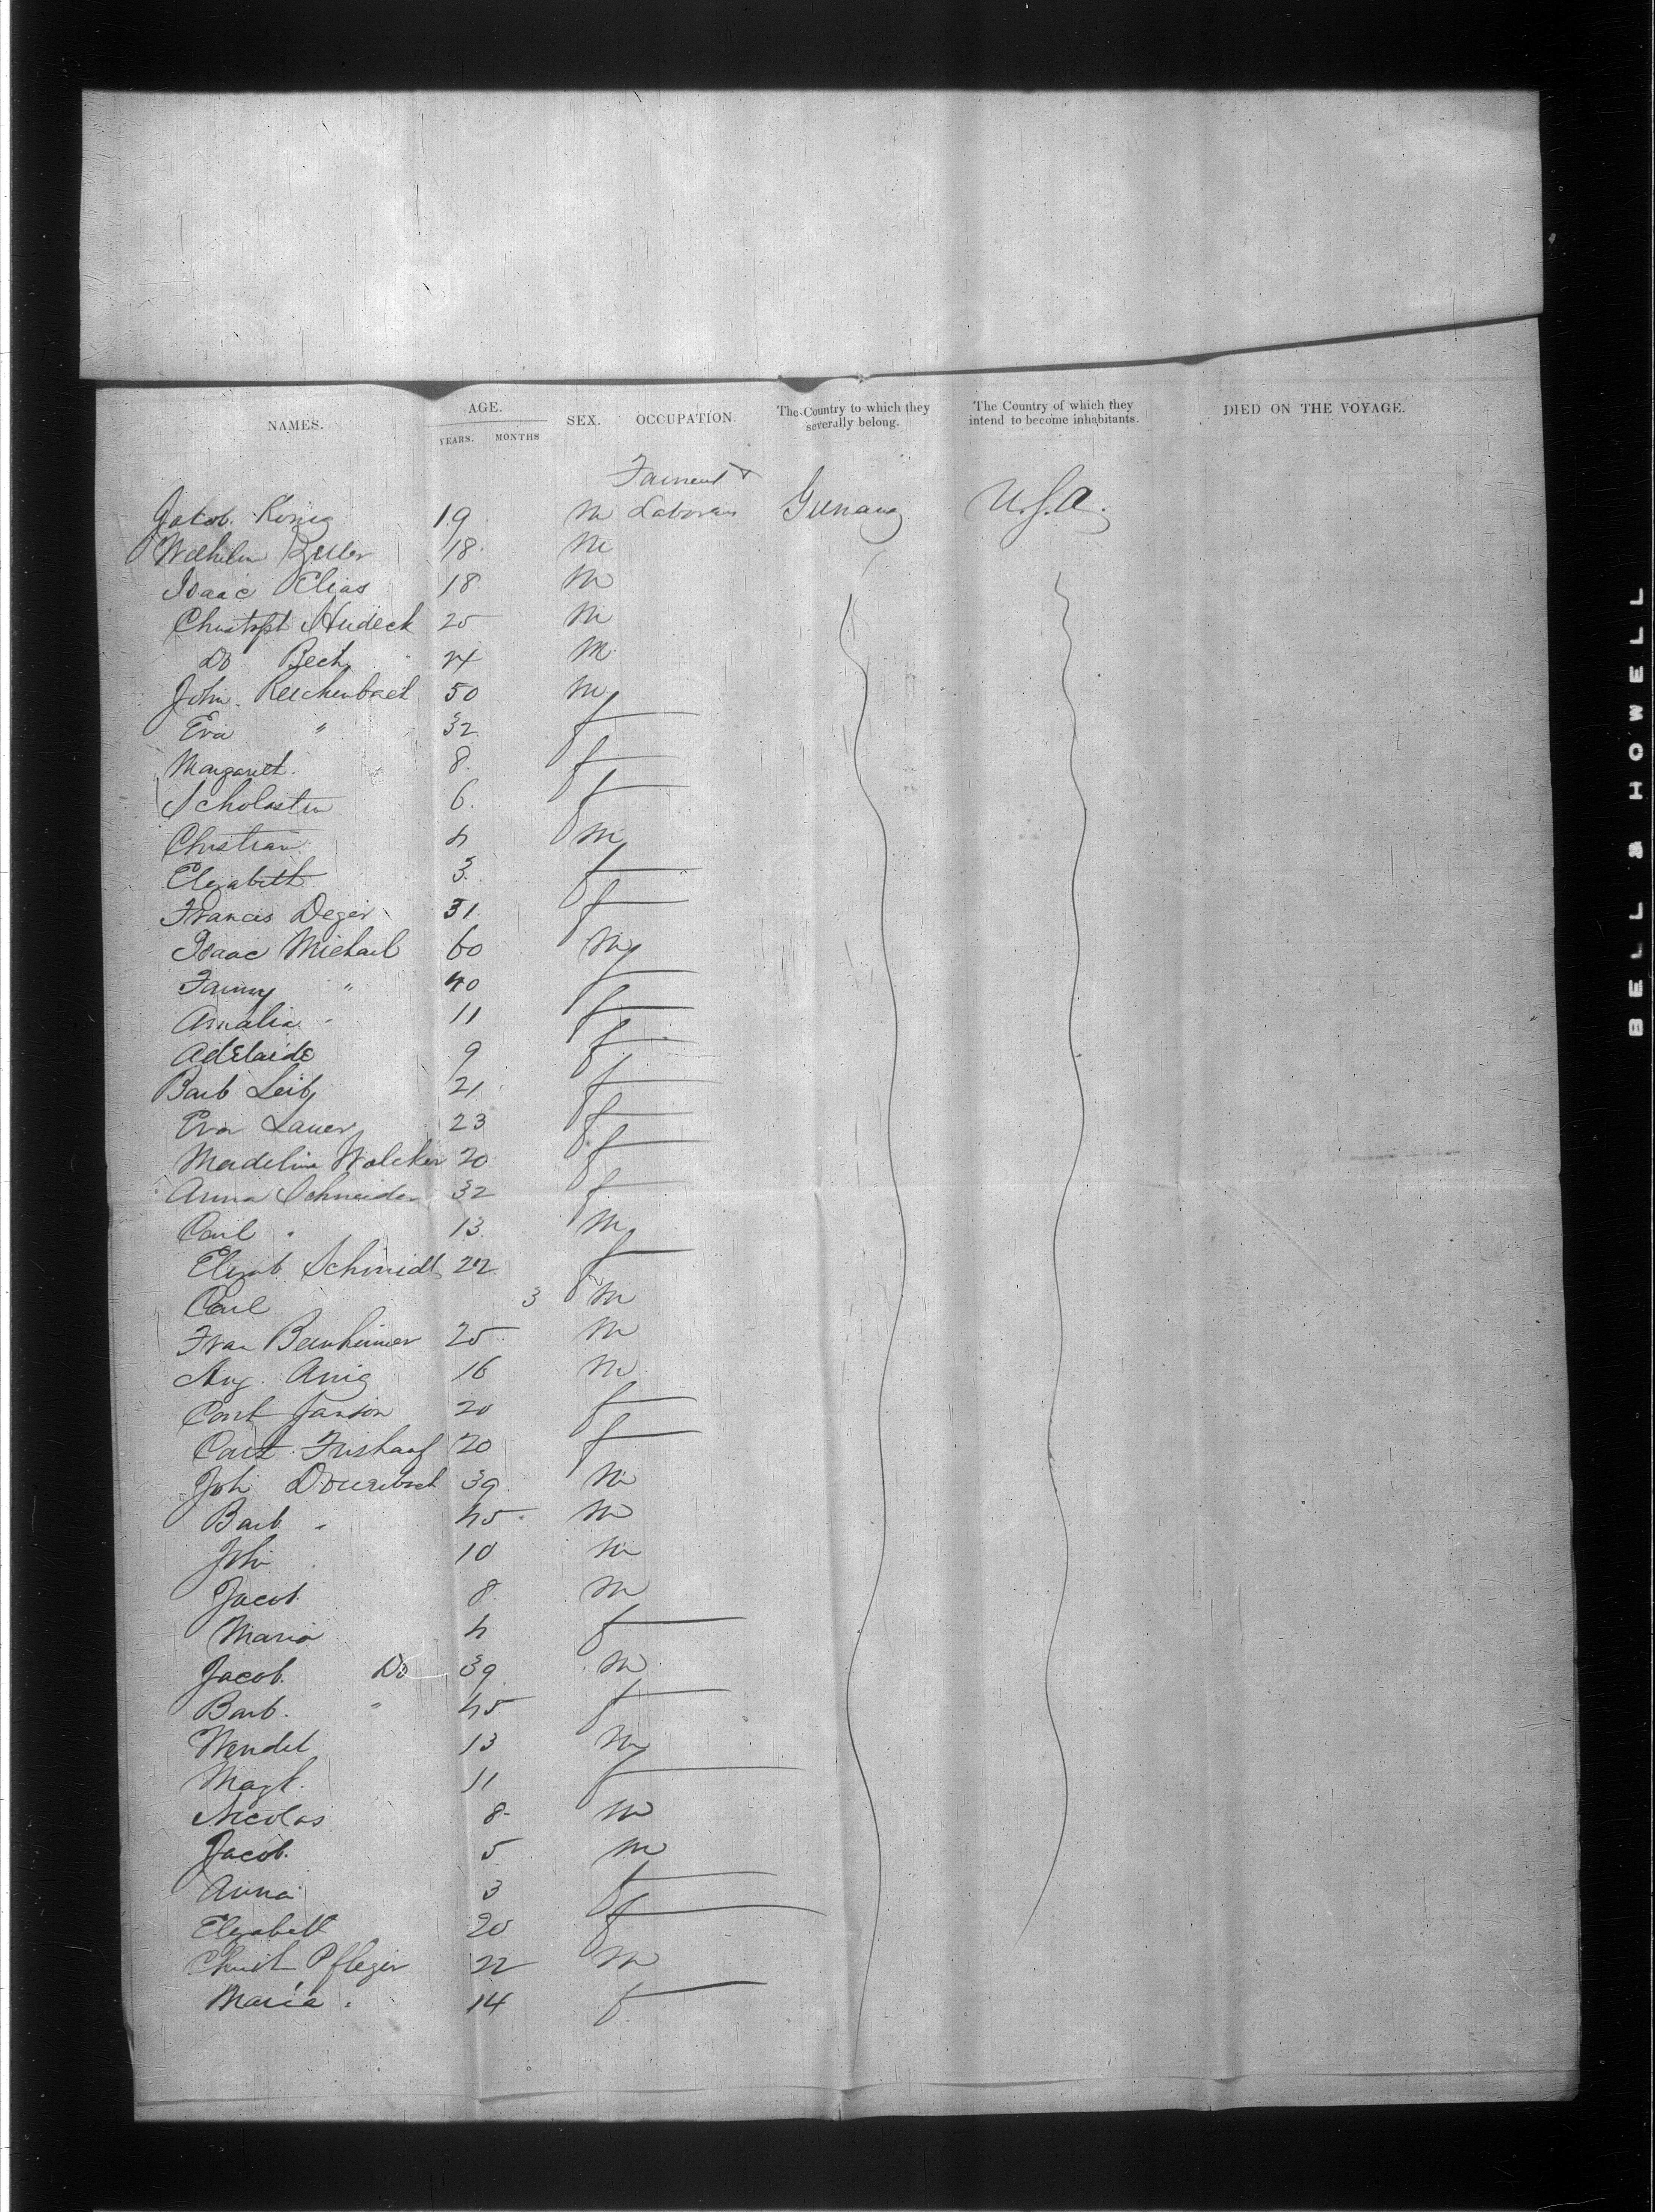 NAMES. AGE. SEX. OCCUPATION. The Country to which they severally belong. The Country of which they intend to become inhabitants. DIED ON THE VOYAGE.
YEARS. MONTHS
Jakob. König 19 m Laborers Germany U.S.A.
Wilhelm 18 m
Isaac Elias 18 m
Christoph 25 m
Do Bech 24 m
John. Reichenbach 50 m
Eva " 32 f
Margaret. 8. f
6. f
Christian 4 m
Elizabeth 3. f
Francis Deger 31 f
Isaac Michael 60 m
Fanny " 40 f
Amalia " 11 f
Adelaide 9 f
Barb Leib 21 f
Eva Lauer 23 f
Madelina Walcker 20 f
Anna Schneider 32 f
Carl " 13 m
Elizab. Schmidt 22 f
Carl 3 m
Fran Bernheimer 25 m
Aug. 16 m
Janson 20 f
20 f
Joh 39 m
Barb " 45 m
Joh 10 m
Jacob 8 m
Maria 4 f
Jacob. Do 39 m
Barb. " 45 f
Wendel 13 m
Magt. 11 f
Nicolas 8 m
Jacob. 5 m
Anna 3 f
Elizabeth 20 f
Christ Pfleger 22 m
Maria " 14 f
BELL & HOWELL